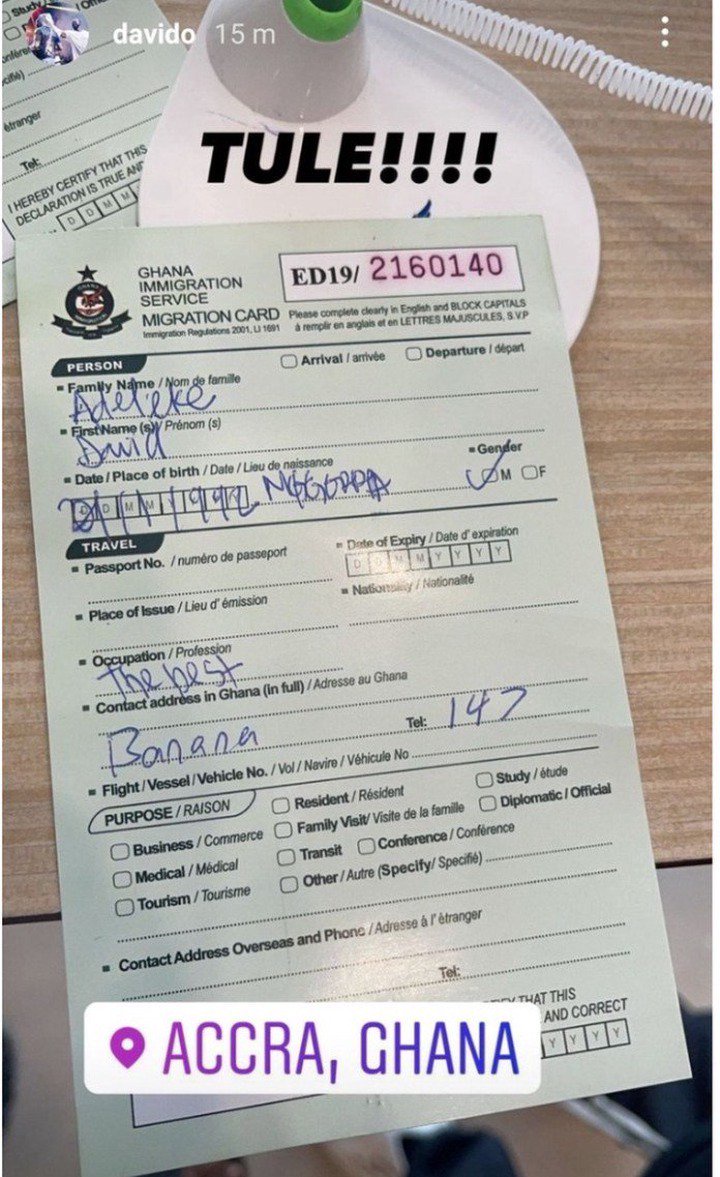 davido 15 m
TULE!!!!
Study /
étranger
Tel:
I HEREBY CERTIFY THAT THIS
DECLARATION IS TRUE AND
D D M M
GHANA
IMMIGRATION
SERVICE
MIGRATION CARD
Immigration Regulations 2001, LI 1691
ED19/ 2160140
Please complete clearly in English and BLOCK CAPITALS
à remplir en anglais et en LETTRES MAJUSCULES, S.V.P
PERSON
Arrival / arrivée Departure / départ
Family Name / Nom de famille
Adeleke
First Name (s) / Prénom (s)
David
Date / Place of birth / Date / Lieu de naissance
Gender
M F
TRAVEL
Passport No. / numéro de passeport
Date of Expiry / Date d' expiration
D D M M Y Y Y Y
Place of Issue / Lieu d' émission
Nationality / Nationalité
Occupation / Profession
The best
Contact address in Ghana (in full) / Adresse au Ghana
Banana
Tel: 147
Flight / Vessel / Vehicle No. / Vol / Navire / Véhicule No
PURPOSE / RAISON
Resident / Résident
Study / étude
Business / Commerce
Family Visit/ Visite de la famille
Diplomatic / Official
Medical / Médical
Transit
Conference / Conférence
Tourism / Tourisme
Other / Autre (Specify/ Specifié)
Contact Address Overseas and Phone / Adresse à l' étranger
Tel:
THAT THIS
AND CORRECT
Y Y Y Y
ACCRA, GHANA